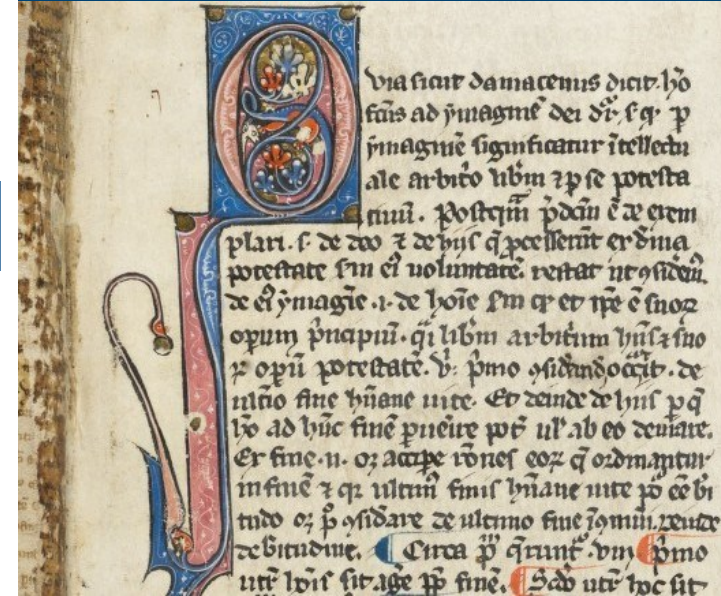 Quia sicut damacenus dicit. hō
fcūs ad ymaginē dei dr̄. s. q. p
ymaginē significatur ītellectu
ale arbit̄o lib̄m ⁊ p se potesta
tiuū. Postqm̄ p̄dcm̄ ē de exem
plari. s. de deo ⁊ de hiis q̄ pcesserūt ex diuīa
potestate scdm eī uoluntatē. restat ut ꝯsidem̄.
de eī ymagīe .i. de hoīe scdm qꝫ et ipe ē suoꝝ
operum p̄ncipiū. q̄i lib̄m arbitrium hn̄s ⁊ suo
ꝝ opū potestatē. p̄mo ꝯsidand̄ occr̄it. de
ultīo fine hūane uite. Et deinde de hiis p q̄
hō ad hūc finē puēire pot̄ ul' ab eo deuiare.
Ex fine .n. oꝫ accipe rōnes eoꝝ q̄ ordinantur
in finē ⁊ qꝛ ultim̄ finis hūane uite pō eē b̄i
tudo oꝫ p̄ ꝯsidare de ultimo fine ī ꝯmuni. deinde
de b̄itudine. Circa p̄m q̄runt̄ .viii. p̄mo
utꝝ hoīs sit agē pp̄ finē. Scdo utꝝ hoc sit